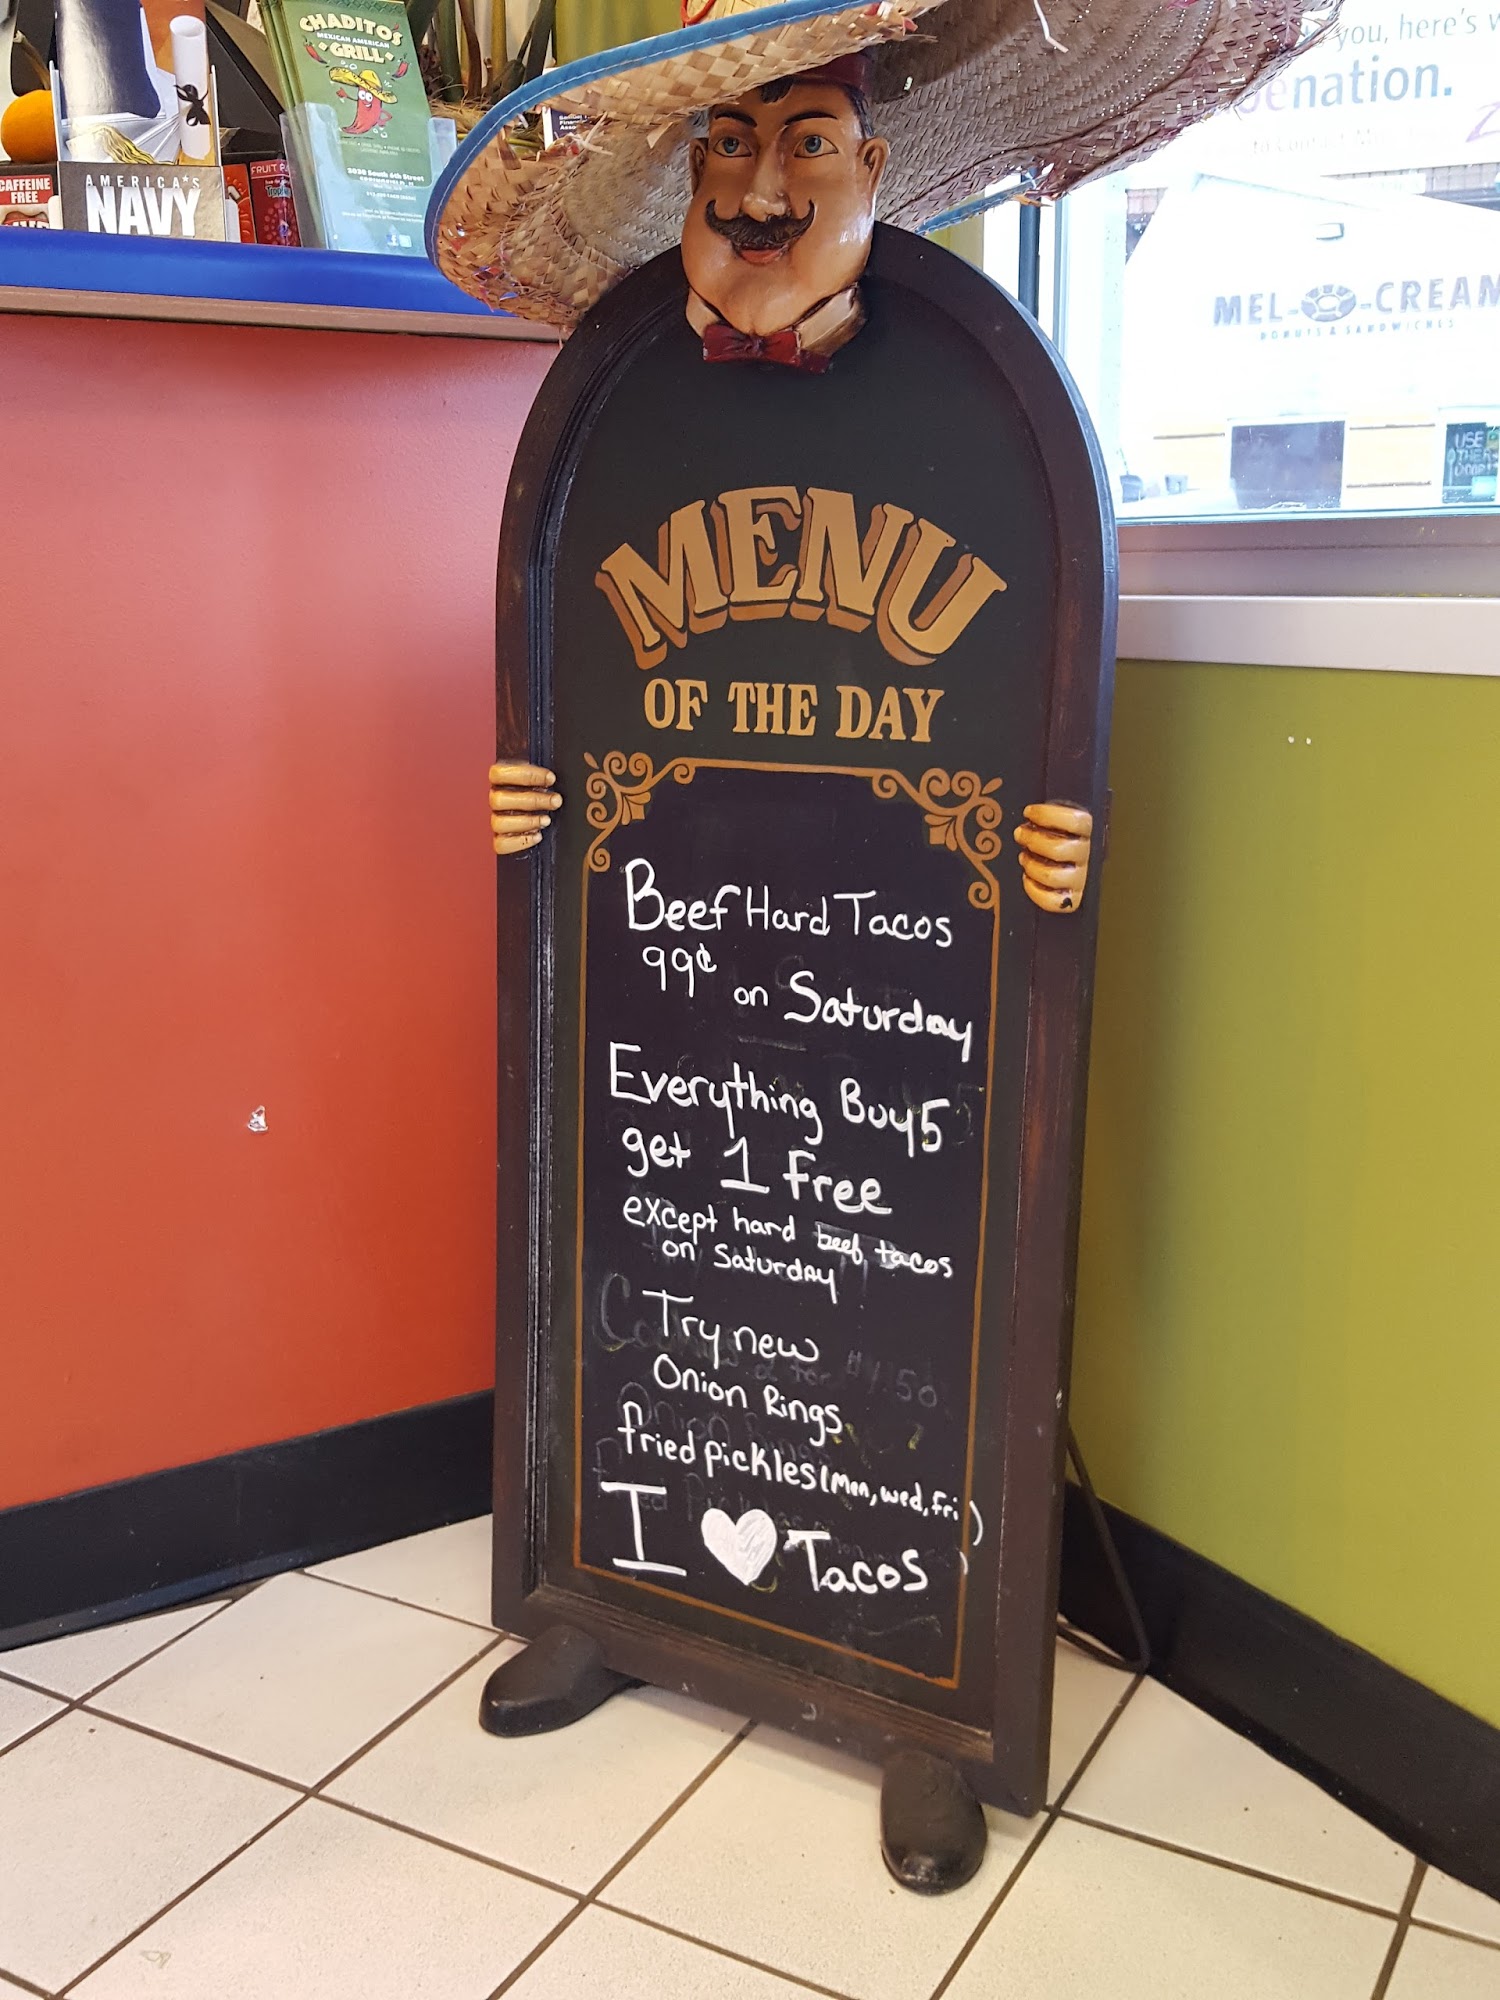 CHADITOS
MEXICAN AMERICAN
GRILL
2020 South 6th Street
AMERICA'S
NAVY
CAFFEINE
FREE
FRUIT
you, here's
nation.
MEL-O-CREAM
DONUTS & SANDWICHES
USE
OTHER
DOOR
MENU
OF THE DAY
Beef Hard Tacos
99¢ on Saturday
Everything Buy 5
get 1 Free
except hard beef tacos
on Saturday
Try new
Onion Rings
fried pickles (Mon, wed, fri)
I ♥ Tacos